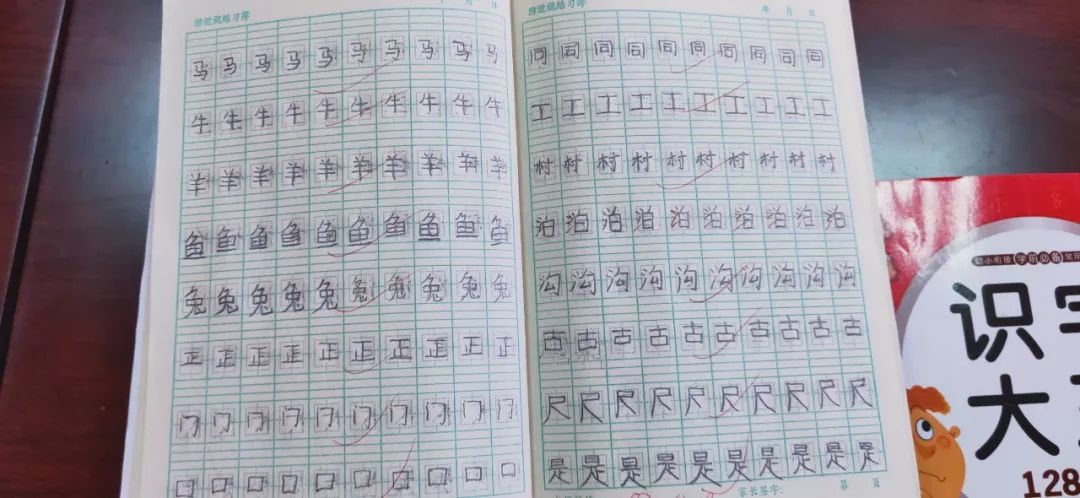 防近视练习簿 月 日
马马马马马马马马马马
牛牛牛牛牛牛牛牛牛牛
羊羊羊羊羊羊羊羊羊羊
鱼鱼鱼鱼鱼鱼鱼鱼鱼鱼
兔兔兔兔兔兔兔兔兔兔
正正正正正正正正正正
门门门门门门门门门门
口口口口口口口口口口
防近视练习簿 年 月 日
同同同同同同同同同同
工工工工工工工工工工
村村村村村村村村村村
泊泊泊泊泊泊泊泊泊泊
沟沟沟沟沟沟沟沟沟沟
古古古古古古古古古古
尺尺尺尺尺尺尺尺尺尺
是是是是是是是是是是
家长签字: 第 页
小 多
幼小衔接 学前必备 常用
识字
大
128